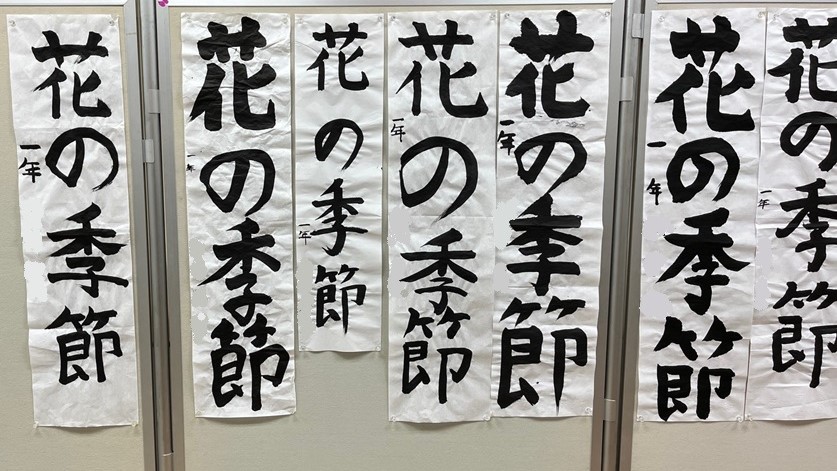 花の季節
一年
花の季節
一年
花の季節
一年
花の季節
一年
花の季節
一年
花の季節
花の季節
一年